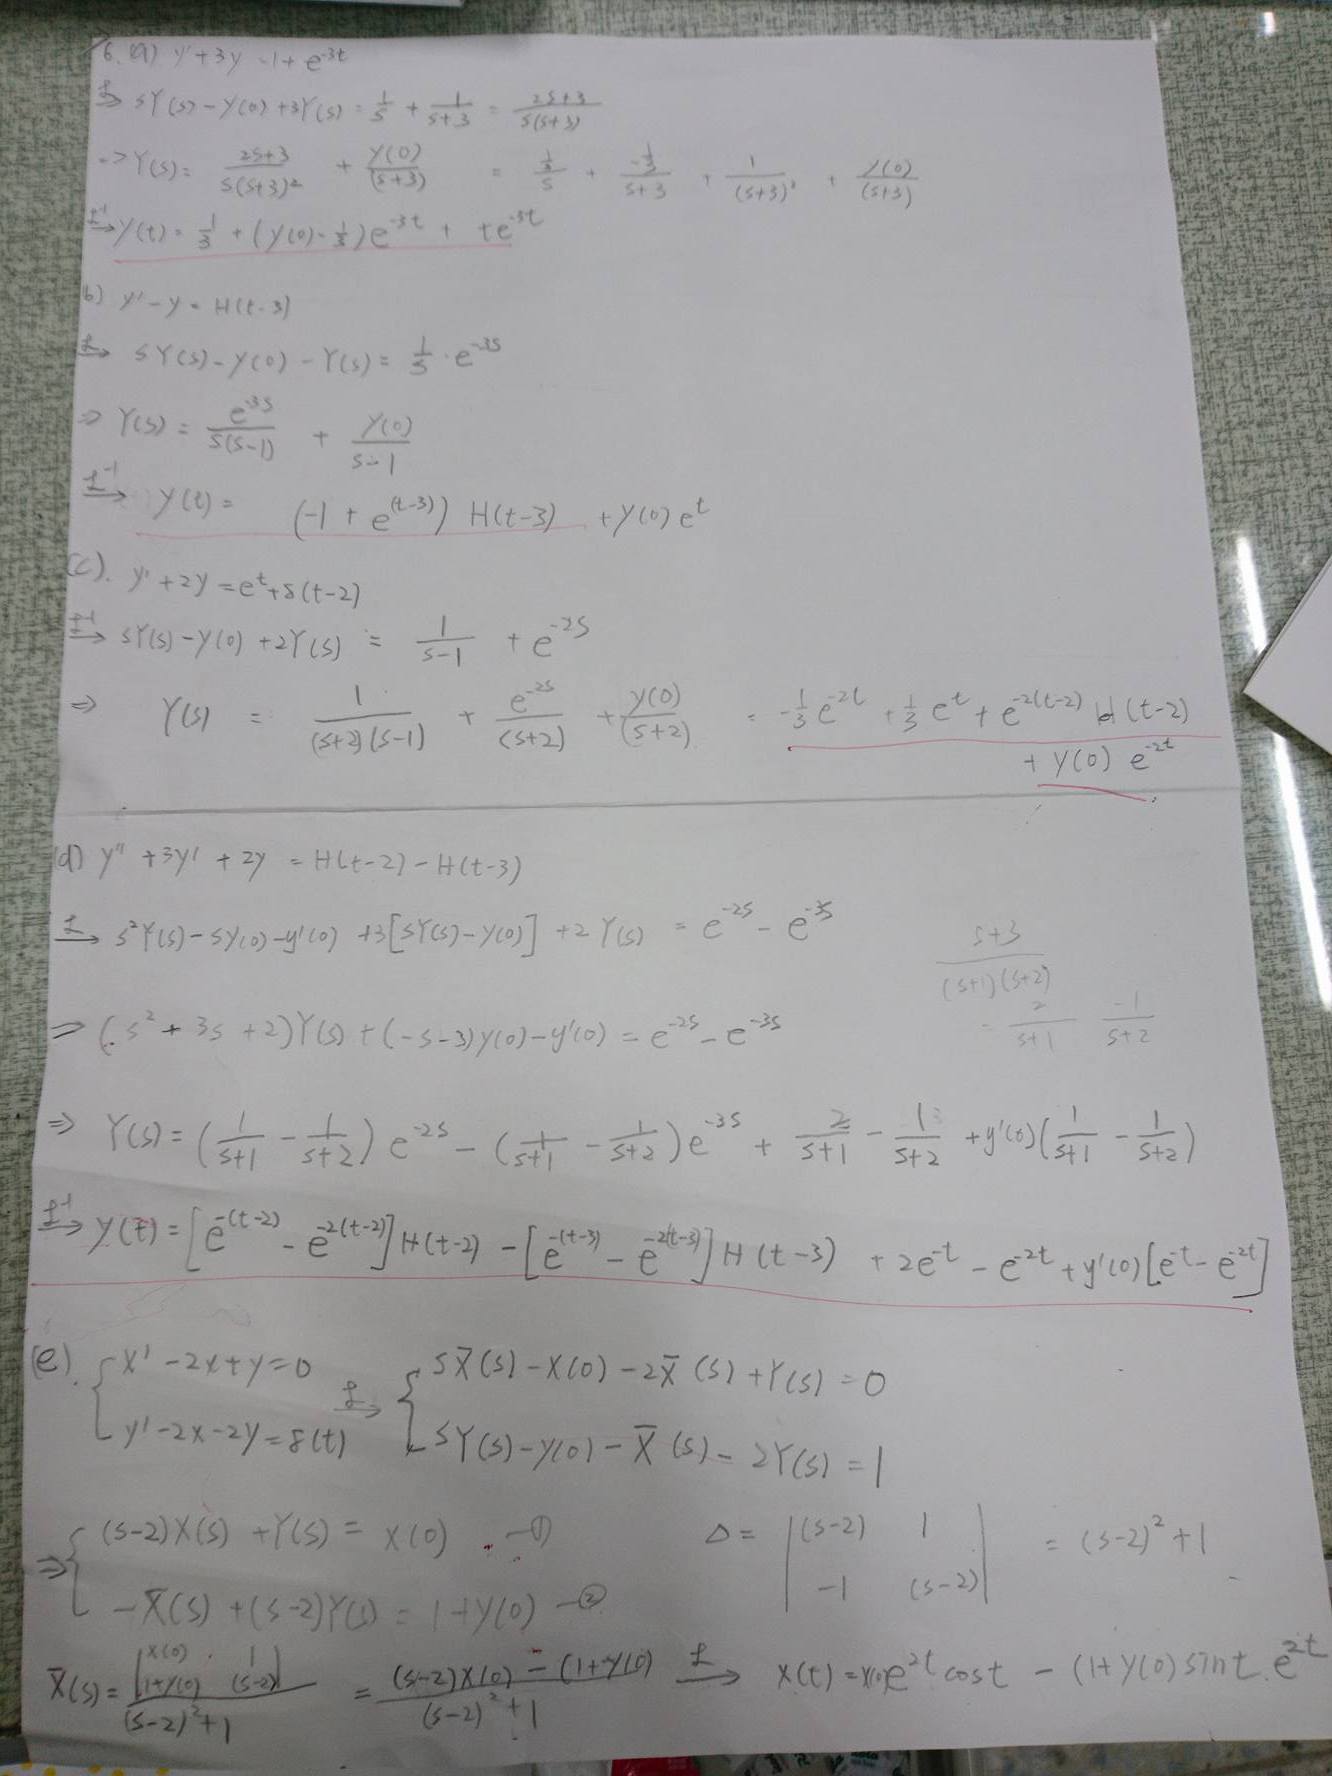 6. (a) y'+3y = 1+ e^{-3t}
£⇒ sY(s) - y(0) +3Y(s) = 1/s + 1/(s+3) = (2s+3)/(s(s+3))
=> Y(s) = (2s+3)/(s(s+3)²) + y(0)/(s+3) = (1/3)/s + (-1/3)/(s+3) + 1/(s+3)² + y(0)/(s+3)
£⁻¹⇒ y(t) = 1/3 + (y(0) - 1/3)e^{-3t} + te^{-3t}
b) y' - y = H(t-3)
£⇒ sY(s) - y(0) - Y(s) = 1/s · e^{-3s}
⇒ Y(s) = e^{-3s}/(s(s-1)) + y(0)/(s-1)
£⁻¹⇒ y(t) = (-1 + e^{(t-3)}) H(t-3) + y(0) e^t
(c). y' +2y = e^t + δ(t-2)
£⁻¹⇒ sY(s) - y(0) +2Y(s) = 1/(s-1) + e^{-2s}
⇒ Y(s) = 1/((s+2)(s-1)) + e^{-2s}/(s+2) + y(0)/(s+2) = -1/3 e^{-2t} + 1/3 e^t + e^{-2(t-2)} H(t-2)
+ y(0) e^{-2t}
(d) y'' +3y' + 2y = H(t-2) - H(t-3)
£⇒ s²Y(s) - sy(0) - y'(0) +3[sY(s) - y(0)] +2Y(s) = e^{-2s} - e^{-3s}
(s+3)/((s+1)(s+2))
= 2/(s+1) -1/(s+2)
⇒ (s² + 3s +2)Y(s) + (-s-3)y(0) - y'(0) = e^{-2s} - e^{-3s}
⇒ Y(s) = (1/(s+1) - 1/(s+2)) e^{-2s} - (1/(s+1) - 1/(s+2)) e^{-3s} + 2/(s+1) - 1/(s+2) + y'(0)(1/(s+1) - 1/(s+2))
£⁻¹⇒ y(t) = [e^{-(t-2)} - e^{-2(t-2)}]H(t-2) - [e^{-(t-3)} - e^{-2(t-3)}]H(t-3) + 2e^{-t} - e^{-2t} + y'(0)[e^{-t} - e^{-2t}]
(e). { x' - 2x + y = 0 £⇒ { sX̄(s) - x(0) - 2X̄(s) + Y(s) = 0
y' - 2x - 2y = δ(t) sY(s) - y(0) - X̄(s) - 2Y(s) = 1
⇒ { (s-2)X(s) + Y(s) = x(0) -①
-X̄(s) + (s-2)Y(s) = 1+y(0) -②
Δ = |(s-2) 1 = (s-2)² + 1
-1 (s-2)|
X̄(s) = |x(0) 1 1+y(0) (s-2)|/((s-2)²+1) = ((s-2)x(0) - (1+y(0))/((s-2)²+1) £⇒ x(t) = x(0)e^{2t} cost - (1+y(0) sint · e^{2t}